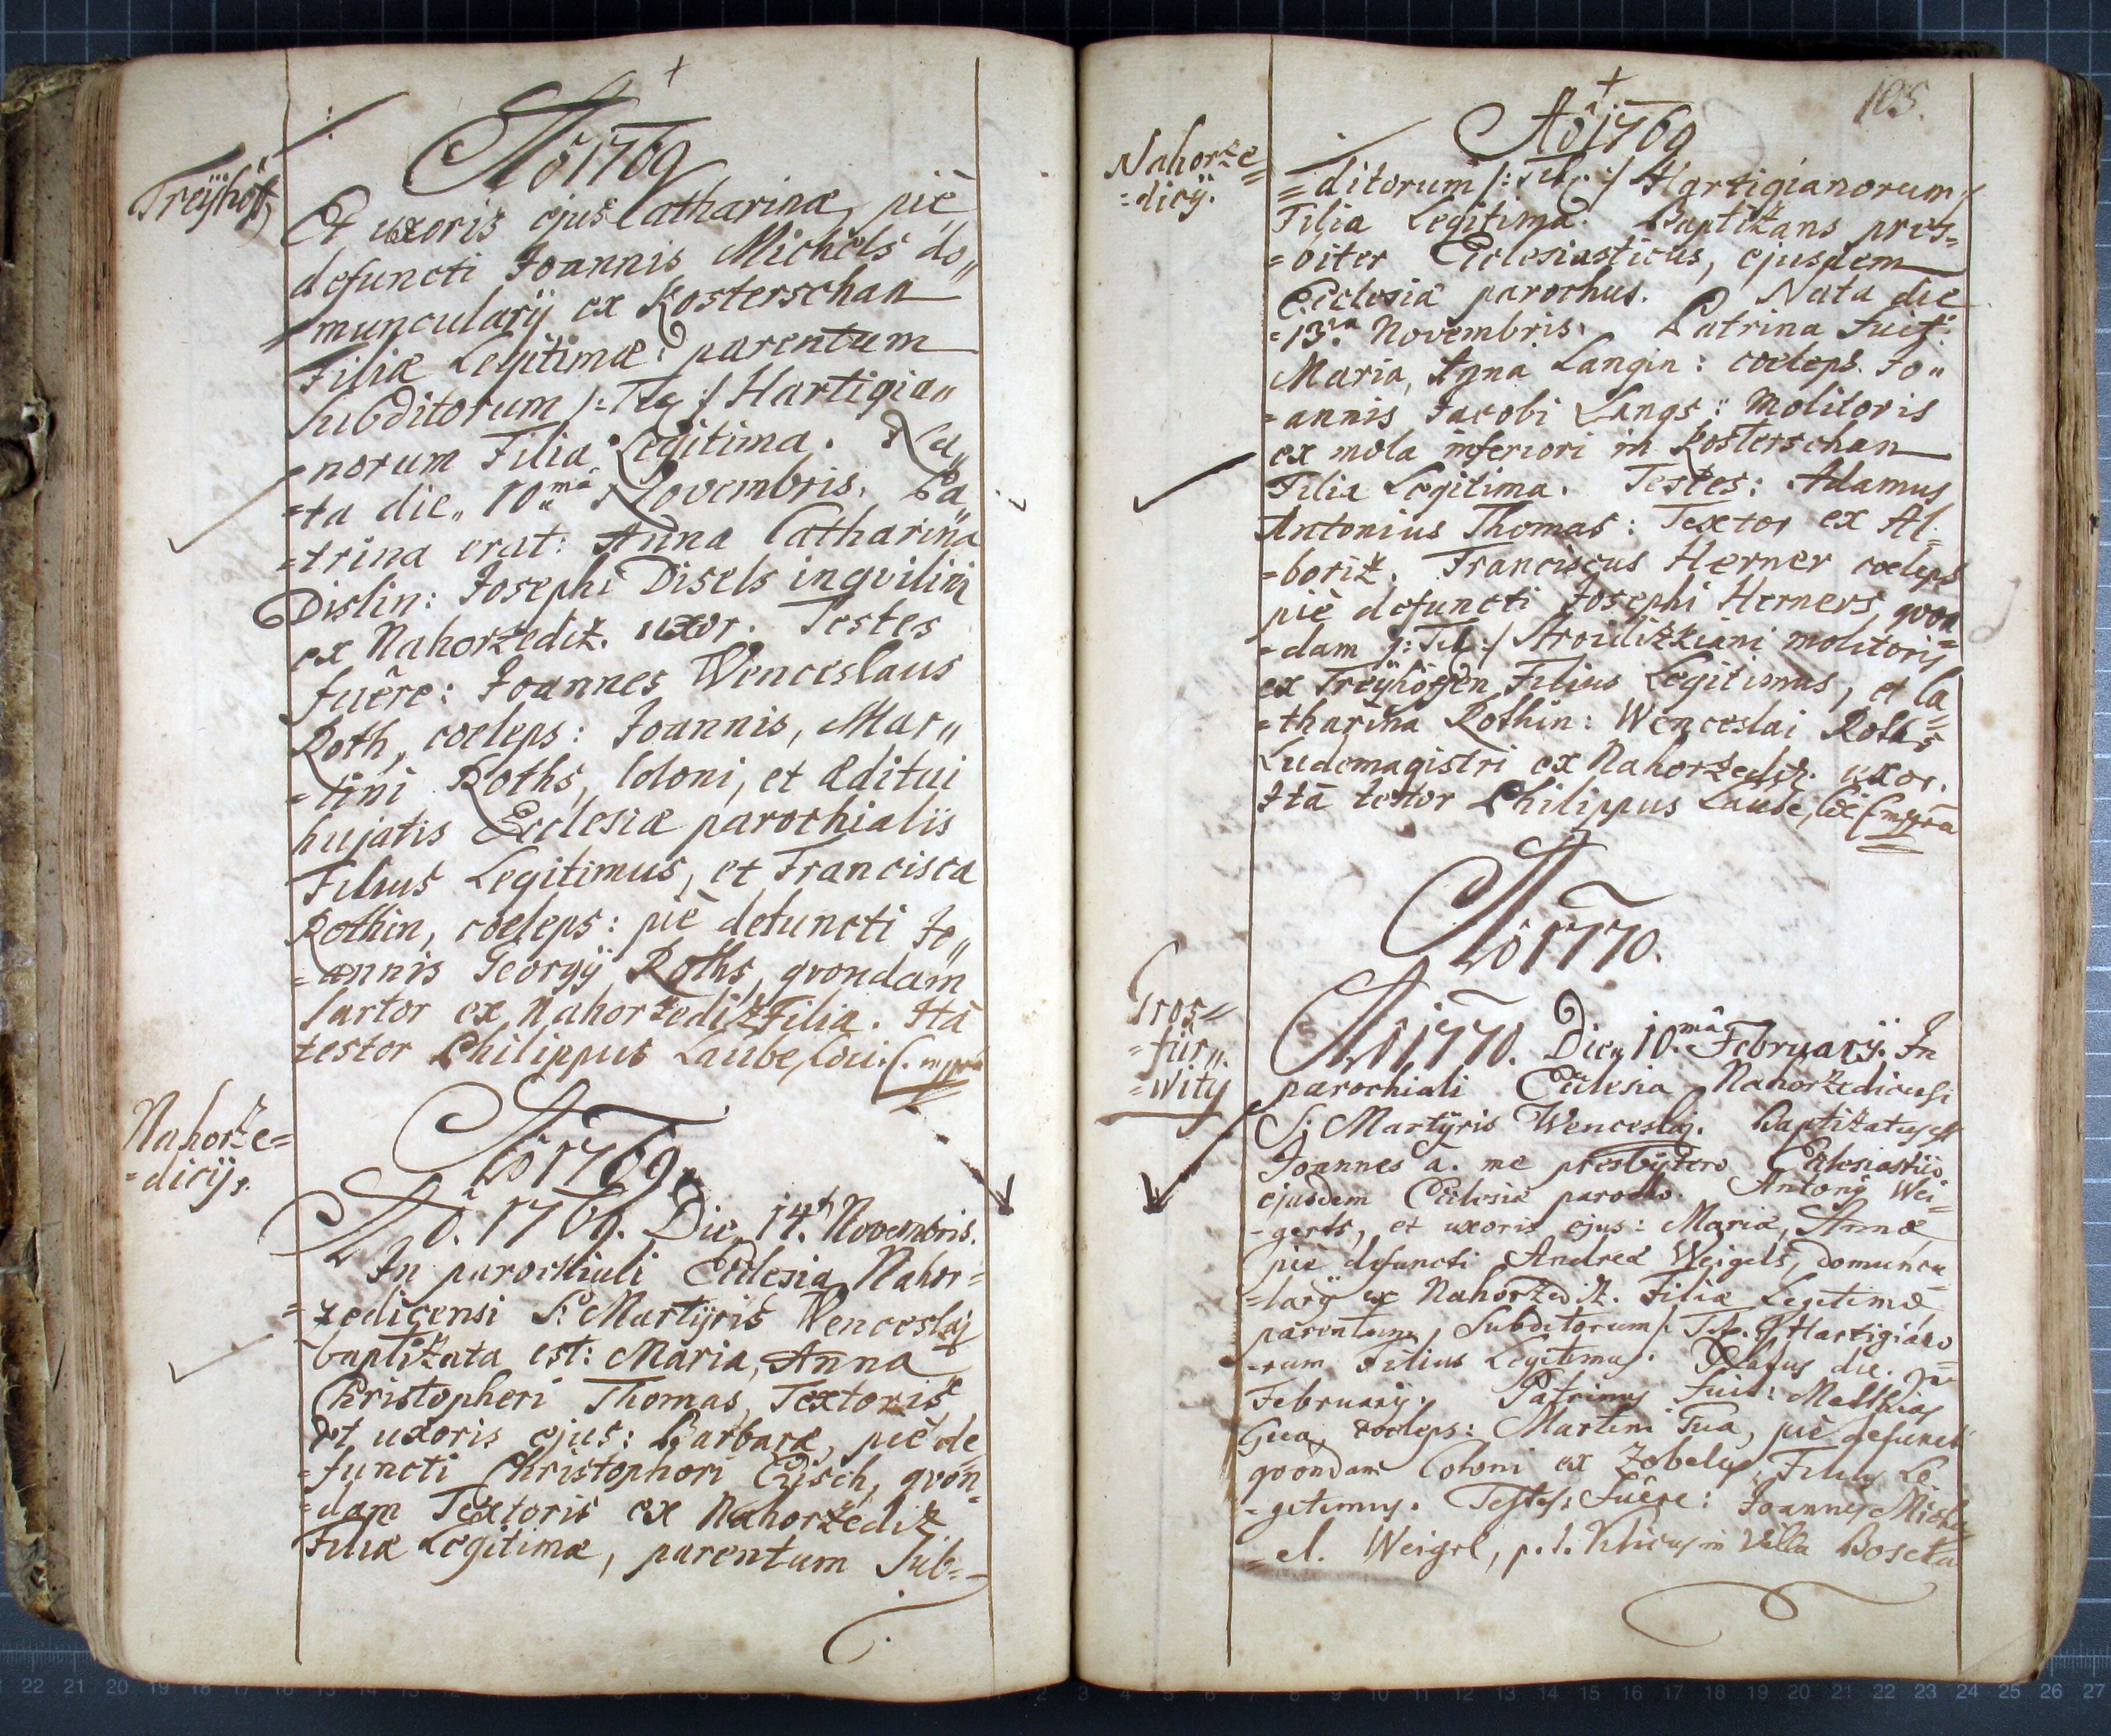 Treÿhöff
Aô 1769
Et uxoris ejus Catharinæ, piè
defuncti Joannis Michèls do„
muncularÿ ex Kosterschan
Filiæ Legitimæ: parentum
Subditorum /: Tit: :/ Hartigia„
norum Filia Legitima. Na„
=ta die„ 10mâ Novembris. Pa„
=trina erat: Anna Catharina
Dislin: Josephi Disels inqvilini
ex Nahorzediz. uxor. Testes
fuêre: Joannes Wenceslaus
Roth, coeleps: Joannis, Mar„
=tini Roths, Coloni, et Æditui
hujatis Ecclesiæ parochialis
Filius Legitimus, et Francisca
Rothin, coeleps: piè defuncti Jo„
=annis Georgÿ Roths, qvondam
Sartor ex Nahorzediz Filia. Ità
testor Philippus Laube,
Nahorze=
=dicÿs.
Aô 1769.
Aô. 1769. Die„ 14. Novembris.
In parochiali Ecclesia Nahor=
=zedicensi S: Martÿris Wenceslaj
baptizata est: Maria, Anna
Christopheri Thomas, Textoris
et uxoris ejus: Barbaræ, piè de
=functi Christophori Disch, qvon=
=dam Textoris ex Nahorzediz
Filiæ Legitimæ, parentum Sub=
105.
Nahorze
=dicÿ.
Aô 1769
=ditorum /: Tit: :/ Hartigianorum
Filia Legitima. Baptizans pres=
=biter Ecclesiasticus, ejusdem
Ecclesiæ parochus. Nata die
=13. Novembris. Patrina Fuit:
Maria, Anna Langin: coeleps. Jo„
=annis Jacobi Langs: Molitoris
ex mola inferiori in Kosterschan
Filia Legitima. Testes: Adamus
Antonius Thomas: Textor ex Al=
=boriz. Franciscus Herner coeleps
piè defuncti Josephi Herners qvon=
=dam /: Tit: :/ molitoris
ex Treÿhöffen Filius Legitimus, et Ca
=tharina Rothin: Wenceslai Roths
Ludemagistri ex Nahorzediz. uxor.
Ità testor Philippus Laube,
Aô 1770.
Gros=
=für„
=wity
Aô 1770. Die„ 10.mâ Februarÿ. In
parochiali Ecclesia Nahorzedicensi
S: Martÿris Wenceslaj. Baptizatus est
Joannes a. me presbÿtero Ecclesiastico
ejusdem Ecclesiæ parocho. Antonÿ Wei=
=gerts, et uxoris ejus: Mariæ, Annæ
piè defuncti Andreæ Weigels, Domuncu
=larÿ ex Nahorzediz. Filiæ Legitimæ
parentum, Subditorum /: Tit. :/ Hartigiano
=rum Filius Legitimus. Natus die.
Februarÿ. Patrinus fuit: Mathias
Gua, coeleps: Martini Gua, piè defuncti
qvondam Coloni ex Zobeles, Filius Le
=gitimus. Testes: fuêre: Joannes Micha
=el. Weigel, p. t. Villicus in Villa